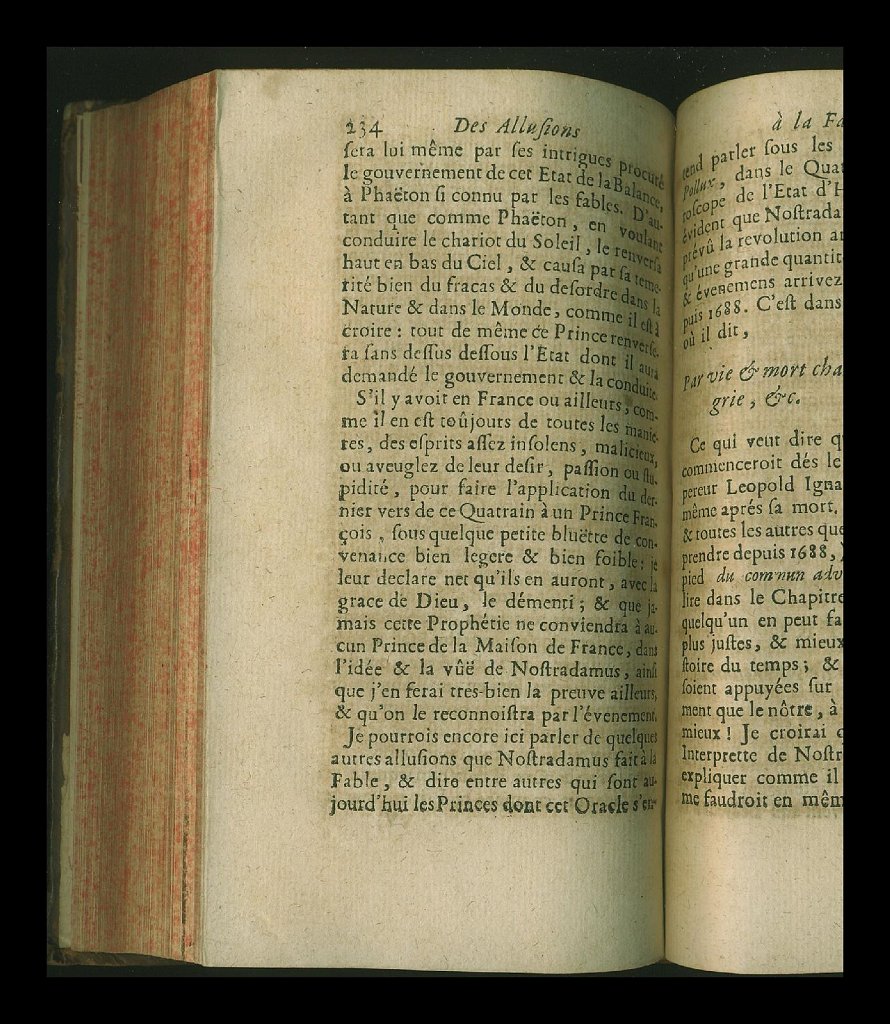 234 Des Alluſions
ſera lui même par ſes intrigues procuré
le gouvernement de cet Etat de la Balance,
à Phaëton ſi connu par les fables. D'au-
tant que comme Phaëton, en voulant
conduire le chariot du Soleil, le renverſa
haut en bas du Ciel, & cauſa par ſa teme-
rité bien du fracas & du deſordre dans la
Nature & dans le Monde, comme il eſt à
croire : tout de même ce Prince renverſe-
ra ſans deſſus deſſous l'Etat dont il aura
demandé le gouvernement & la conduite.
S'il y avoit en France ou ailleurs, com-
me il en eſt toûjours de toutes les manie-
res, des eſprits aſſez inſolens, malicieux,
ou aveuglez de leur deſir, paſſion ou ſtu-
pidité, pour faire l'application du der-
nier vers de ce Quatrain à un Prince Fran-
çois, ſous quelque petite bluëtte de con-
venance bien legere & bien foible; je
leur declare net qu'ils en auront, avec la
grace de Dieu, le démenti; & que ja-
mais cette Prophétie ne conviendra à au-
cun Prince de la Maiſon de France, dans
l'idée & la vûë de Noſtradamus, ainſi
que j'en ferai tres-bien la preuve ailleurs,
& qu'on le reconnoiſtra par l'évenement.
Je pourrois encore ici parler de quelques
autres alluſions que Noſtradamus fait à la
Fable, & dire entre autres qui ſont au-
jourd'hui les Princes dont cet Oracle s'en-
à la Fa
tend parler ſous les
Pollux, dans le Quat
roſcope de l'Etat d'H
évident que Noſtrada
prévû la revolution ar
qu'une grande quantit
& évenemens arrivez
puis 1688. C'eſt dans
où il dit,
Par vie & mort cha
grie, &c.
Ce qui veut dire q
commenceroit dés le
pereur Leopold Igna
même aprés ſa mort.
& toutes les autres que
prendre depuis 1688,
pied du commun adv
lire dans le Chapitre
quelqu'un en peut fa
plus juſtes, & mieux
ſtoire du temps; &
ſoient appuyées ſur
ment que le nôtre, à
mieux ! Je croirai q
Interprete de Noſtr
expliquer comme il
me faudroit en mêm